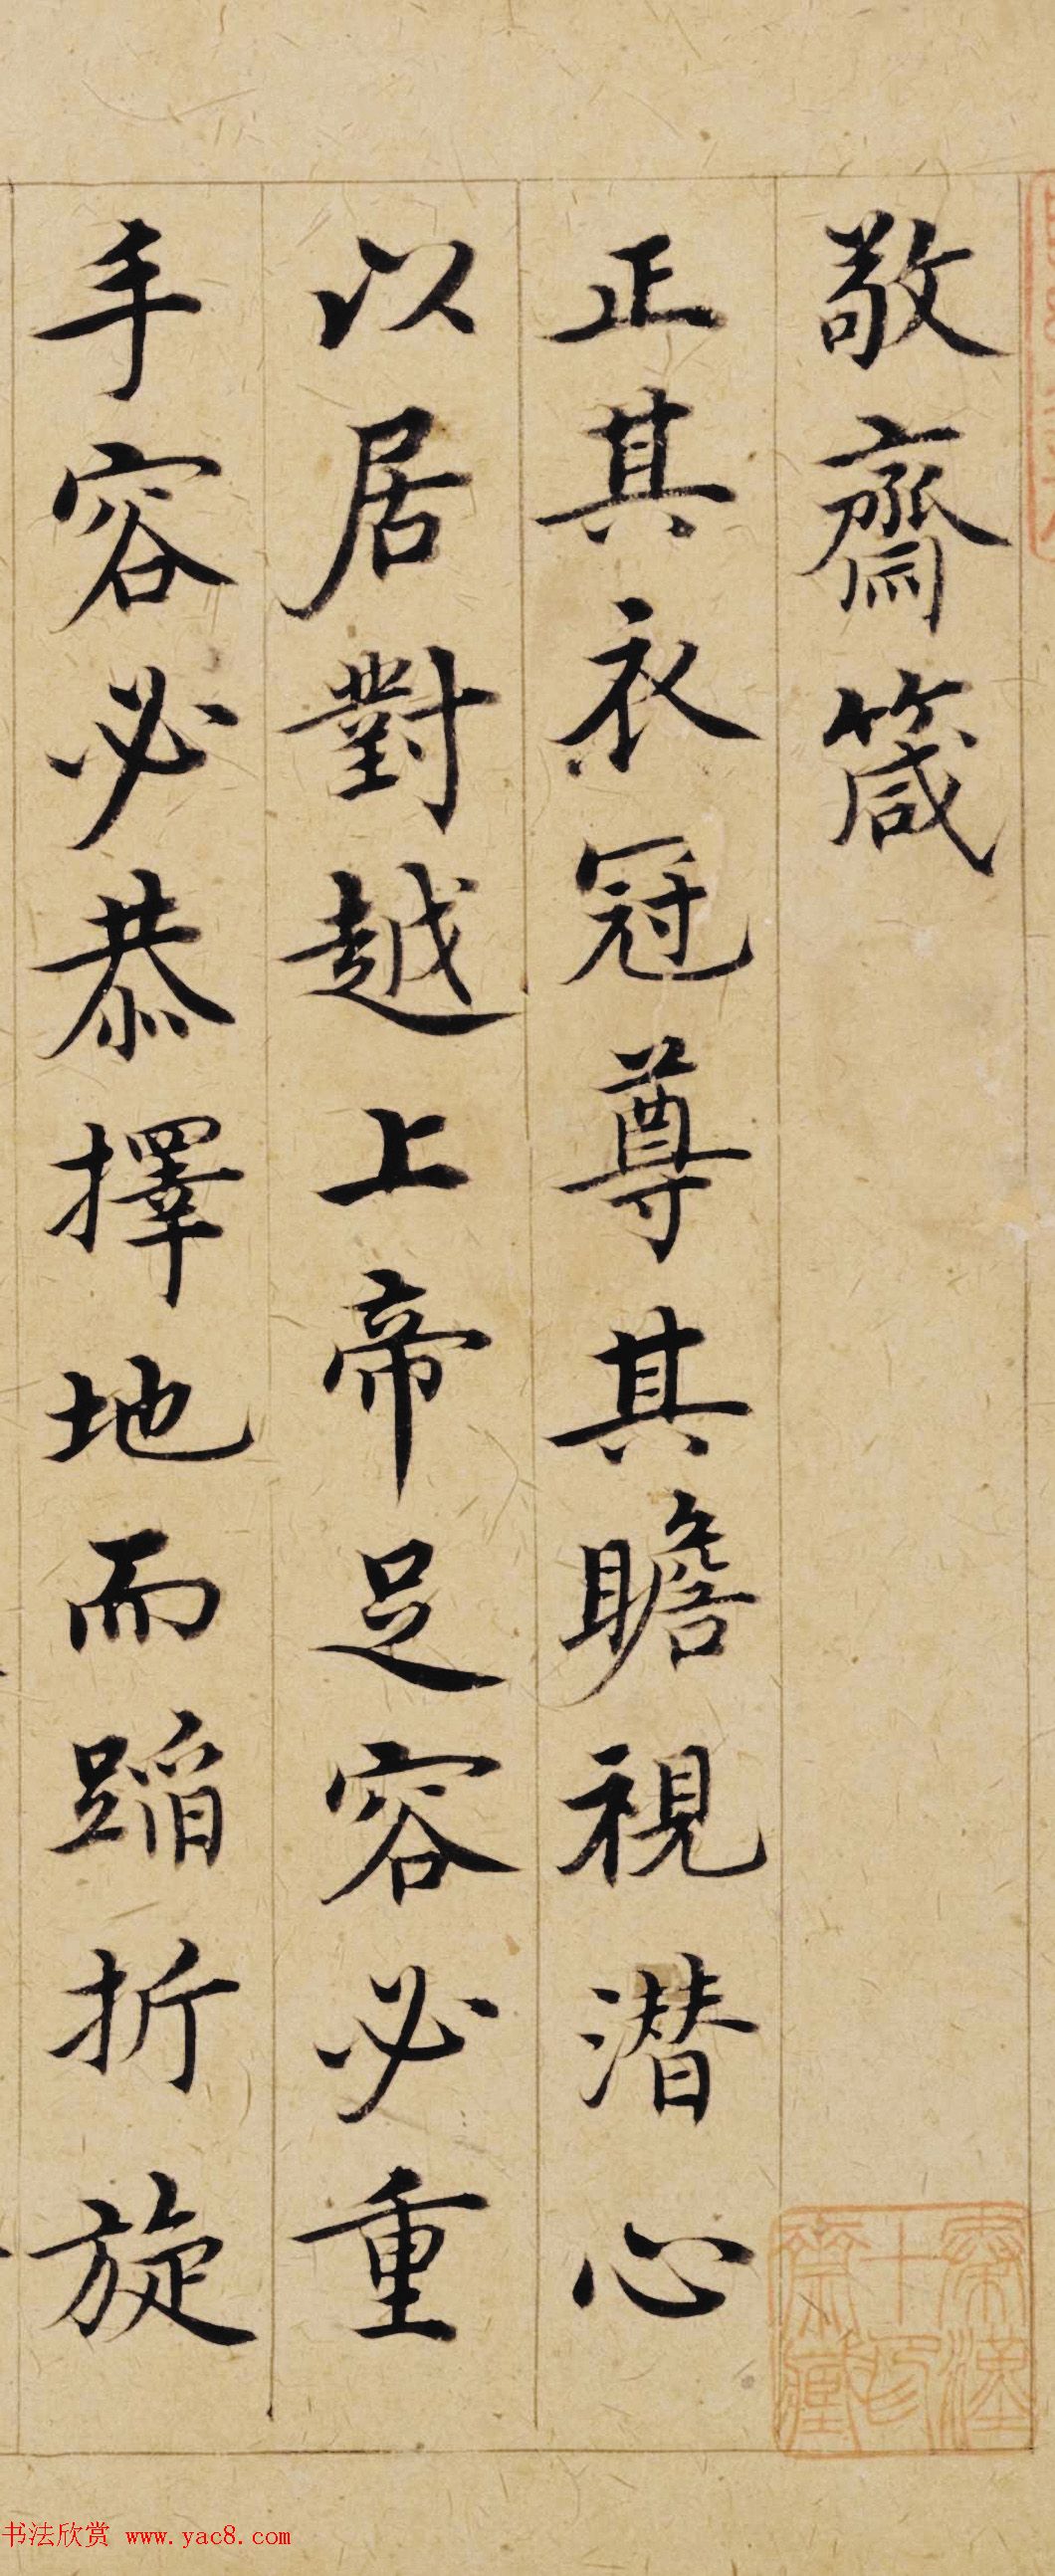 敬齋箴
正其衣冠尊其瞻視潜心
以居對越上帝足容必重
手容必恭擇地而蹈折旋
书法欣赏 www.yac8.com